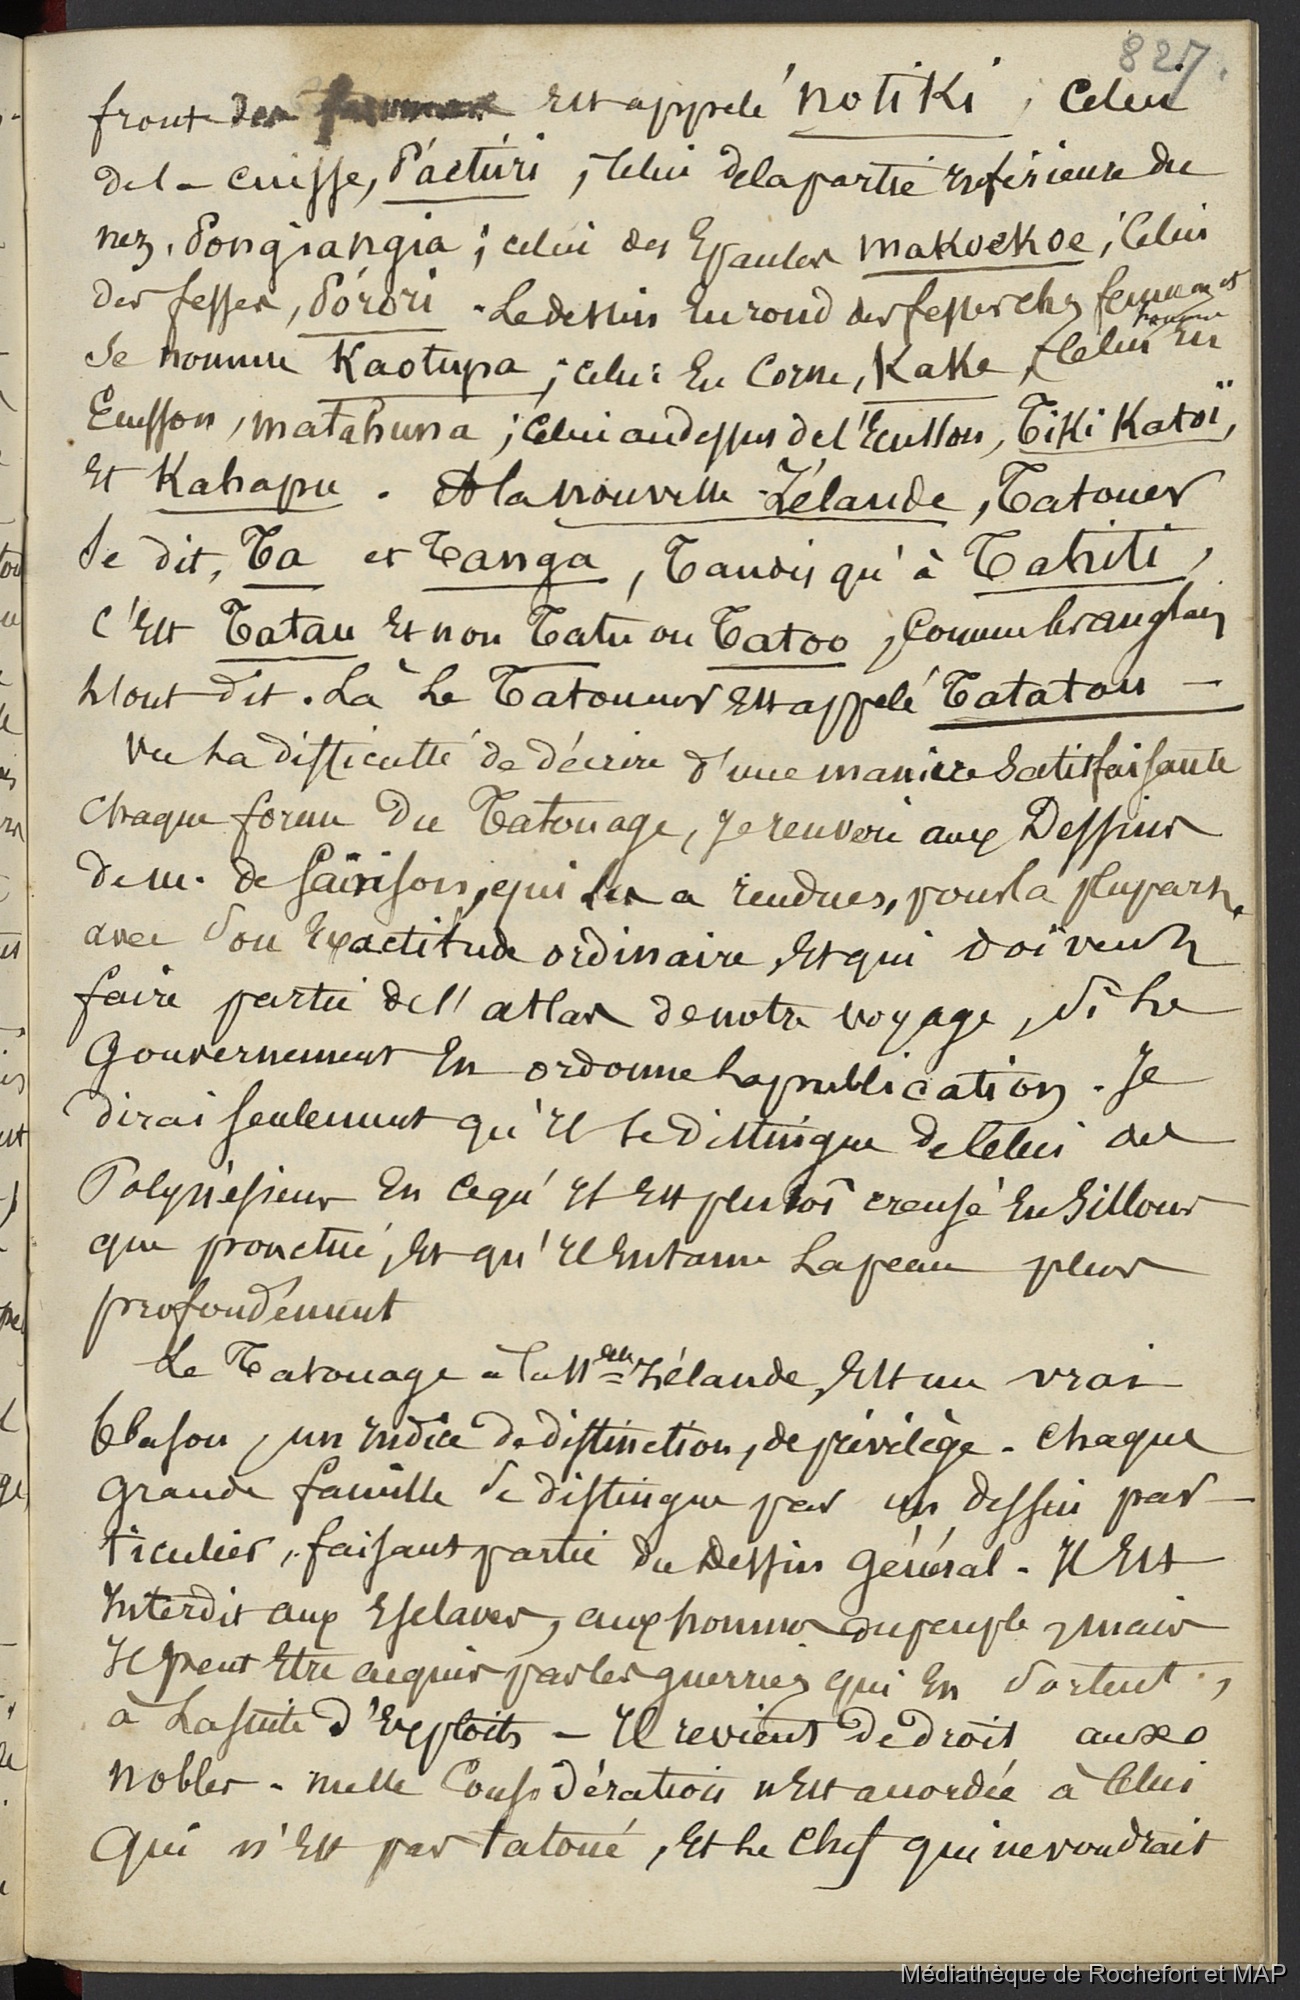 827.
front des est appelé notiki, celui
de la cuisse, Páctúri ; celui de la partie inférieure du
nez, Pongiangia ; celui des Epaules makoekoe ; celui
des fesses, Pórori - Le dessin en rond des fesses chez femmes et
se nomme Kaotupa ; celui En Corne, Kake, Celui En
Ecusson, matahuna ; Celui au dessus de l'Ecusson, Tiki Katoï,
Et Kahapu . A la nouvelle-Zélande, Tatouer
se dit, Ta et Tanga, Tandis qu'à Tahiti,
C'Est Tatau Et non Tatu ou Tatoo, Comme les anglais
l'ont dit . Là Le Tatoueur Est appelé Tatatau -
Vu La difficulté de décrire d'une manière Satisfaisante
Chaque forme Du Tatouage, Je renvoie aux Dessins
de M. de Sainson, qui les a rendues, pour la plupart,
avec son Exactitude ordinaire, Et qui doivent
faire partie de l'atlas de notre voyage, Si Le
Gouvernement En ordonne La publication . Je
dirai seulement qu'Il se distingue de Celui des
Polynésiens En ce qu'Il Est plutôt creusé En Sillons
que ponctué, Et qu'Il Entame La peau plus
profondément
Le Tatouage à la Nelle Zélande, Est un vrai
blason, un Indice de distinction, de privilège - Chaque
Grande famille se distingue par un dessin par-
ticulier, faisant partie du Dessin Général - Il Est
Interdit aux Esclaves, aux hommes du peuple, mais
Il peut Etre acquis par les guerriers qui En sortent,
à La suite d'Exploits - Il revient de droit aux
nobles - nulle Considération n'Est accordée à Celui
Qui n'Est pas tatoué, Et Le Chef qui ne voudrait
Médiathèque de Rochefort et MAP